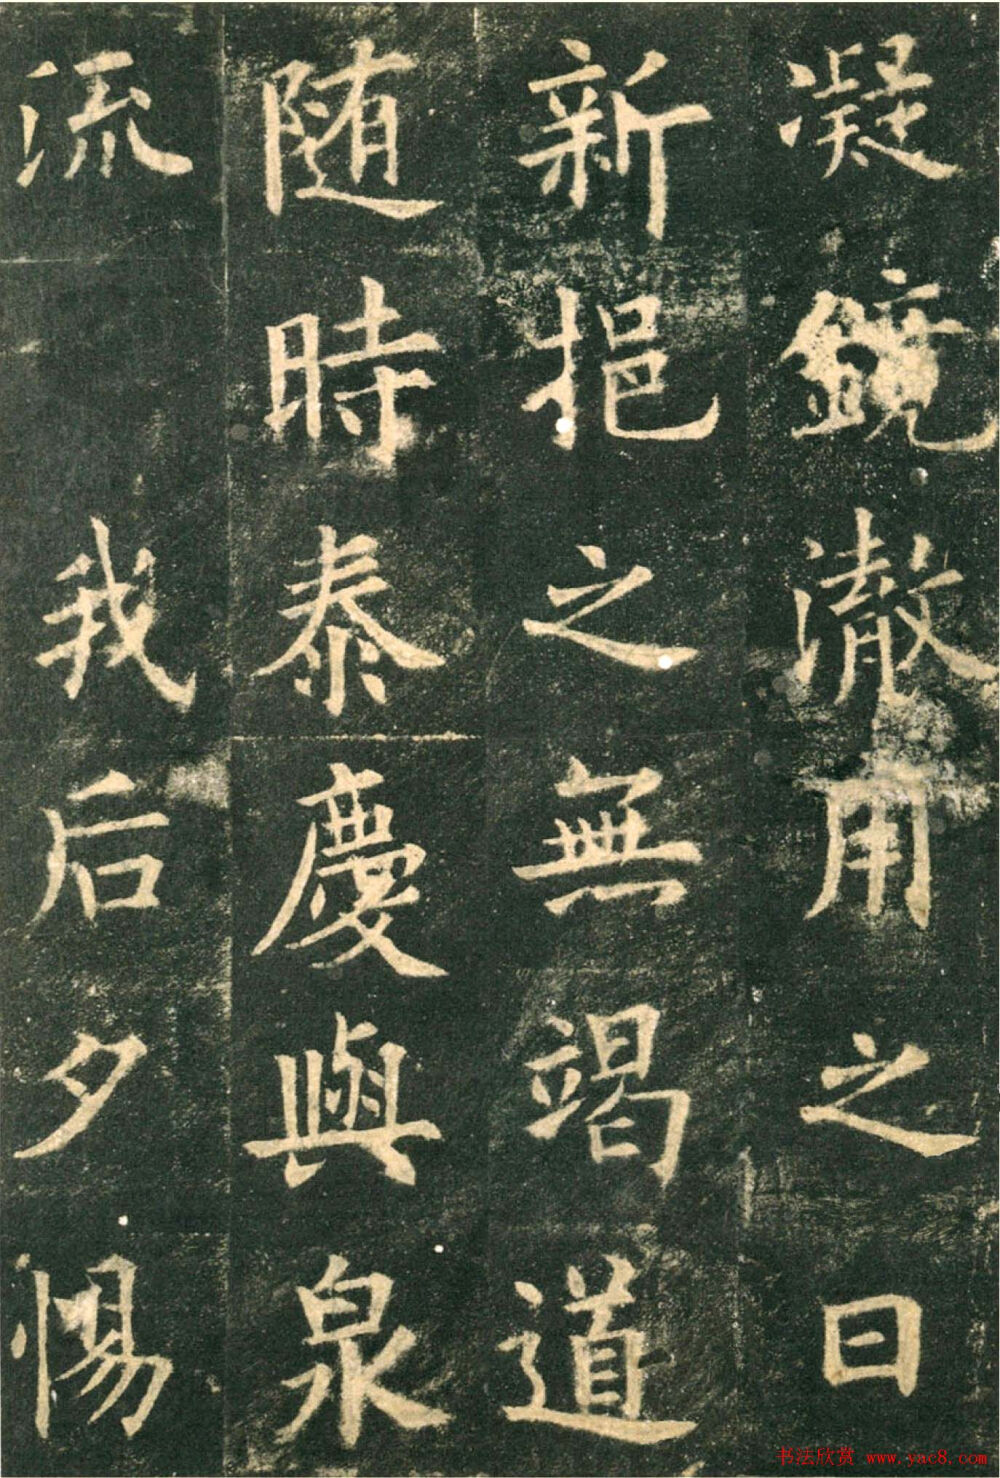 凝鏡澈用之日
新挹之無竭道
随時泰慶與泉
流 我后夕惕
书法欣赏 www.yac8.com